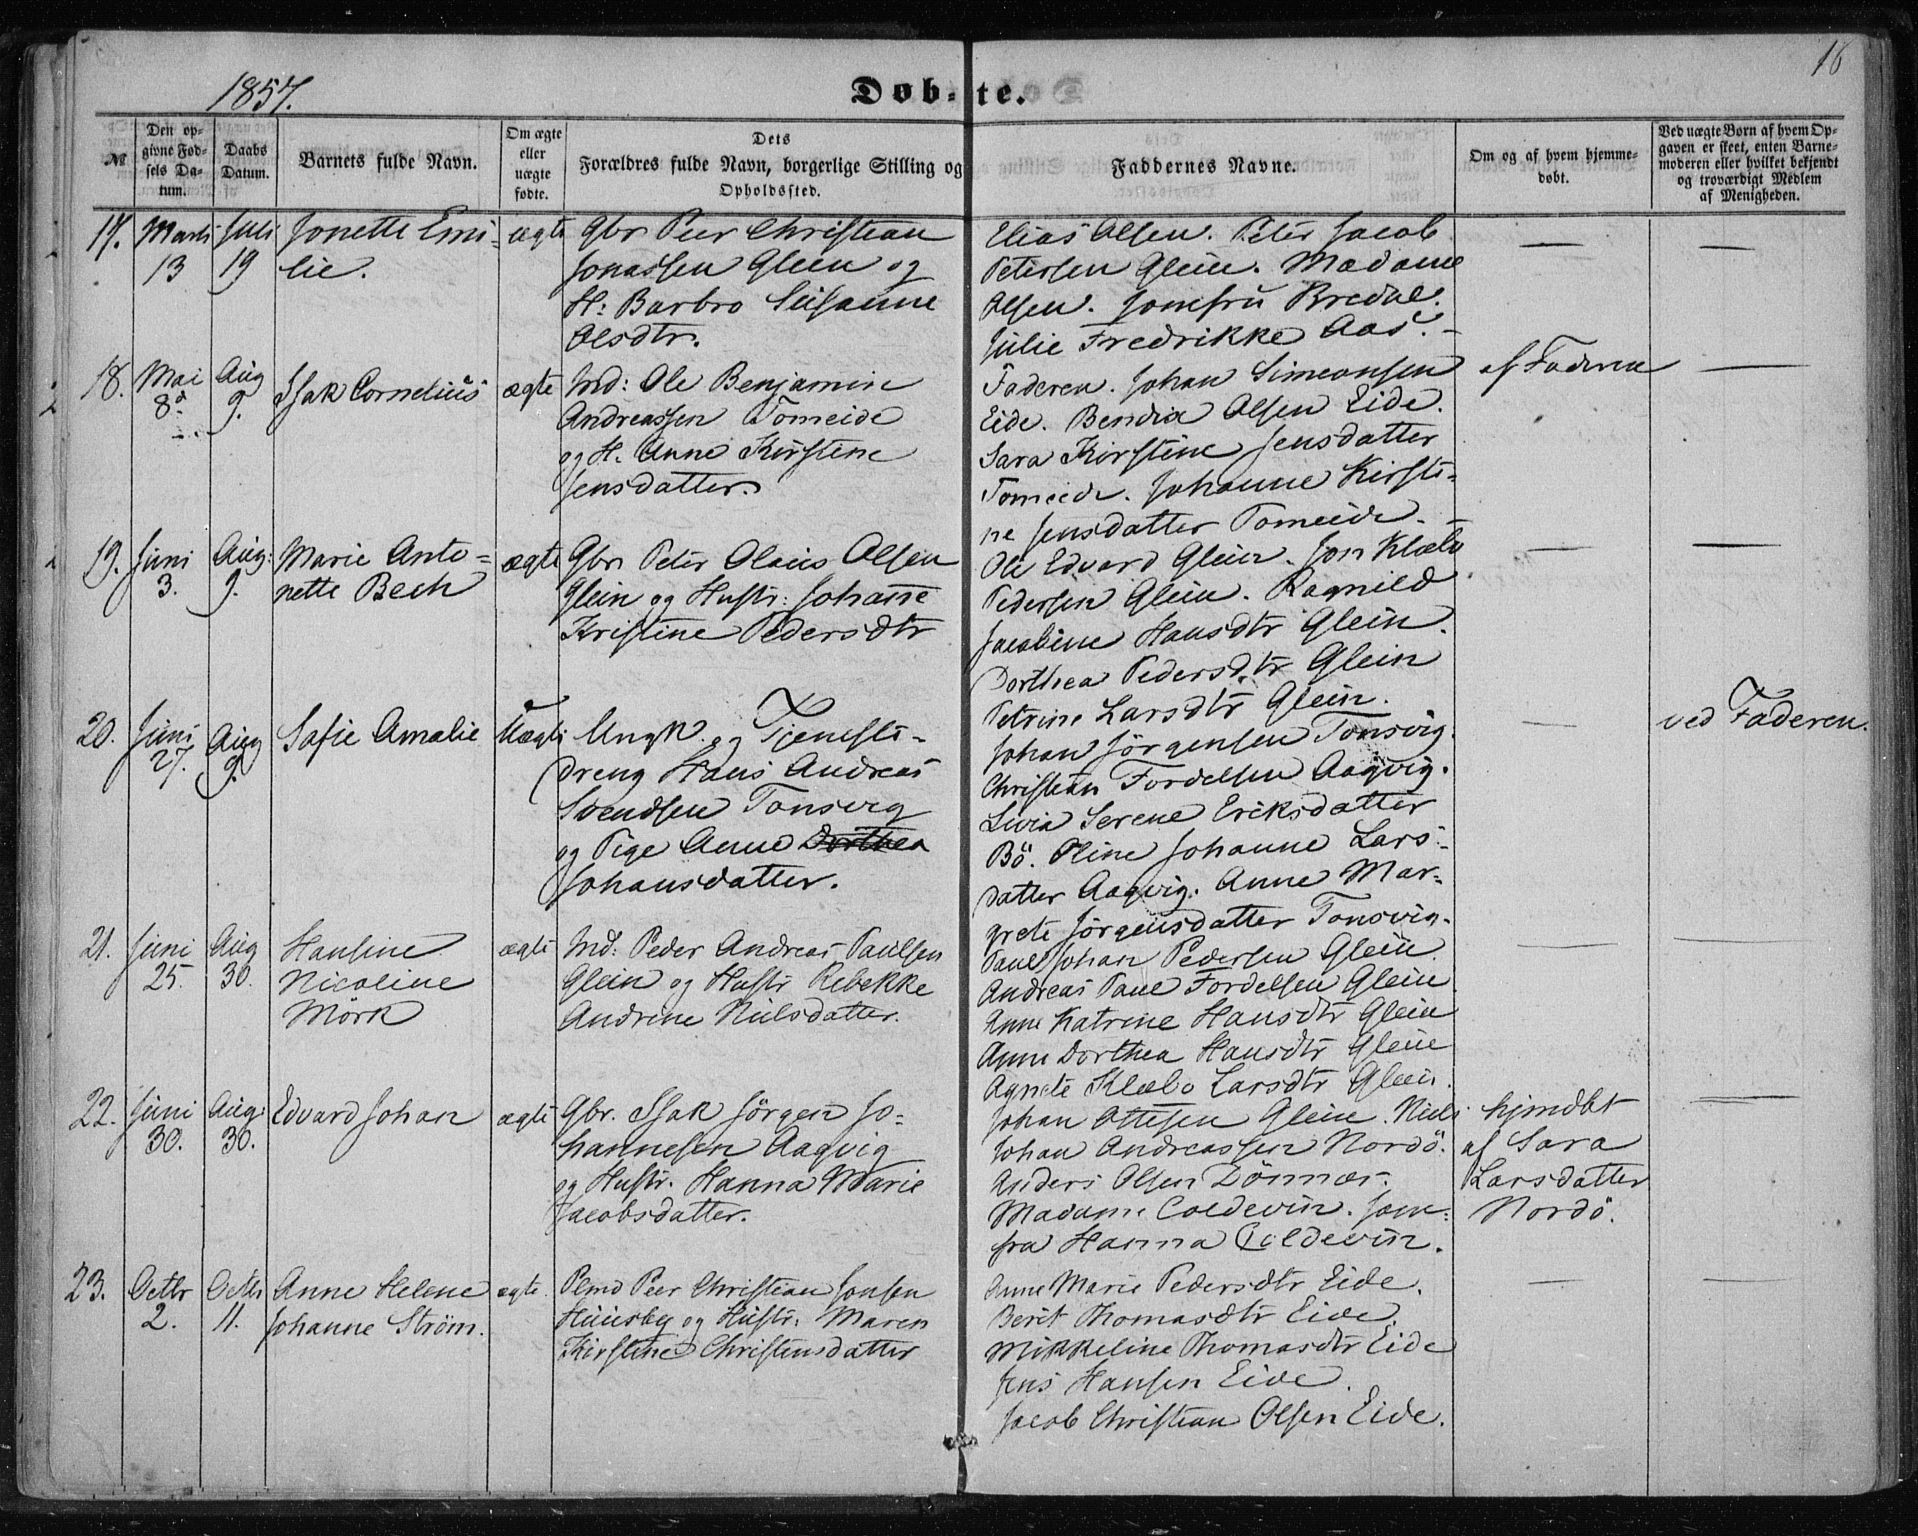 1857.
Døb-te.
16
№
Den op-
givne Fød-
sels Da-
tum.
Daabs
Datum.
Barnets fulde Navn.
Om ægte
eller
uægte
fødte.
Dets
Forældres fulde Navn, borgerlige Stilling og
Opholdssted.
Faddernes Navne.
Om og af hvem hjemme-
døbt.
Ved uægte Børn af hvem Op-
gaven er skeet, enten Barne-
moderen eller hvilket bekjendt
og troværdigt Medlem
af Menigheden.
17.
Marts
13
Juli
19
Jonette Emi-
lie.
ægte
Gbr Peer Christian
Jonassen Glein og
H: Barbro Susanne
Olsdtr.
Elias Olsen. Peter Jacob
Petersen Glein. Madame
Olsen. Jomfru Bredal.
Julie Fredrikke Aas. -
18.
Mai
8d
Aug
9.
Isak Cornelius
ægte
Ind: Ole Benjamin
Andreassen Tomeide
og H. Anne Kirstine
Jensdatter.
Faderen. Johan Simeonsen
Eide. Bendix Olsen Eide.
Sara Kirstine Jensdatter
Tomeide. Johanne Kirsti-
ne Jensdatter Tomeide. -
af Faderen
19.
Juni
3.
Aug:
9.
Marie Anto-
nette Bech
ægte
Gbr Peter Olaus Olsen
Glein og Hustr: Johanne
Kristine Pedersdtr
Ole Edvard Glein. Jon Klæbo
Pedersen Glein. Ragnild
Jacobine Hansdtr Glein.
Dorthea Pedersdtr Glein
Petrine Larsdtr Glein.
20.
Juni
27.
Aug
9.
Safie Amalie
Uægte
Ungk. og Tjeneste-
dreng Hans Andreas
Svendsen Tonsvig
og Pige Anne Dorthea
Johansdatter.
Johan Jörgensen Tonsvig.
Christian Fordelsen Aagvig.
Livia Serene Eriksdatter
Bö. Oline Johanne Lars-
datter Aagvig. Anne Mar-
grete Jörgensdatter Tonsvig.
ved Faderen.
21.
Juni
25.
Aug
30.
Hansine
Nicoline
Mörk
ægte
Ind: Peder Andreas Paulsen
Glein og Hustr Rebekke
Andrine Nielsdatter.
Paul Johan Pedersen Glein.
Andreas Paul Fordelsen Glein
Anne Katrine Hansdtr Glein
Anne Dorthea Hansdtr Glein
Agnete Klæbo Larsdtr Glein.
22.
Juni
30.
Aug:
30.
Edvard Johan
ægte
Gbr. Isak Jörgen Jo-
hannesen Aagvig
og Hustr. Hanna Marie
Jacobsdatter.
Johan Ottesen Glein. Niels
Johan Andreassen Nordö.
Anders Olsen Dönnæs.
Madame Coldevin. Jom-
fru Hanna Coldevin.
hjmdbt
af Sara
Larsdatter
Nordö.
23.
Octbr
2.
Octbr
11.
Anne Helene
Johanne Ström.
ægte.
Plmd Peer Christian Jonsen
Huusby og Hustr. Maren
Kirstine Christensdatter
Anne Marie Pedersdtr Eide.
Berit Thomasdtr Eide.
Mikkeline Thomasdtr Eide
Jens Hansen Eide.
Jacob Christian Olsen Eide.